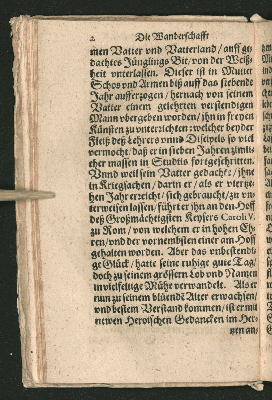 2 Die Wanderschafft
men Vatter vnd Vatterland / auff ge-
dachtes Jünglings Bit / von der Weiß-
heit vnterlassen. Dieser ist in Mutter
Schos vnd Armen biß auff das siebende
Jahr aufferzogen / hernach von seinem
Vatter einem gelehrten verstendigen
Mann vbergeben worden / ihn in freyen
Künsten zu vnterzichten: welcher beyder
Fleiß deß Lehrers vnnd Discipels so viel
vermocht / daß er in sieben Jahren zimli-
cher massen in Studiis fortgeschritten.
Vnnd weil sein Vatter gedacht / ihne
in Kriegsachen / darin er / als er viertze-
hen Jahr erzicht / sich gebraucht / zu vn-
terweisen lassen / führt er ihn an den Hoff
deß Großmächtigsten Keysers Caroli V.
zu Rom / von welchem er in hohen Eh-
ren / vnd der vornembsten einer am Hoff
gehalten worden. Aber das vnbestendi-
ge Glück / hatte seine ruhige gute Tag /
doch zu seinem grössern Lob vnd Namen
in vielfeltige Mühe verwandelt. Als er
nun zu seinem blüende Alter erwachsen /
vnd bestem Verstand kommen / ist er mit
newen Heroischen Gedancken im Her-
tzen an-